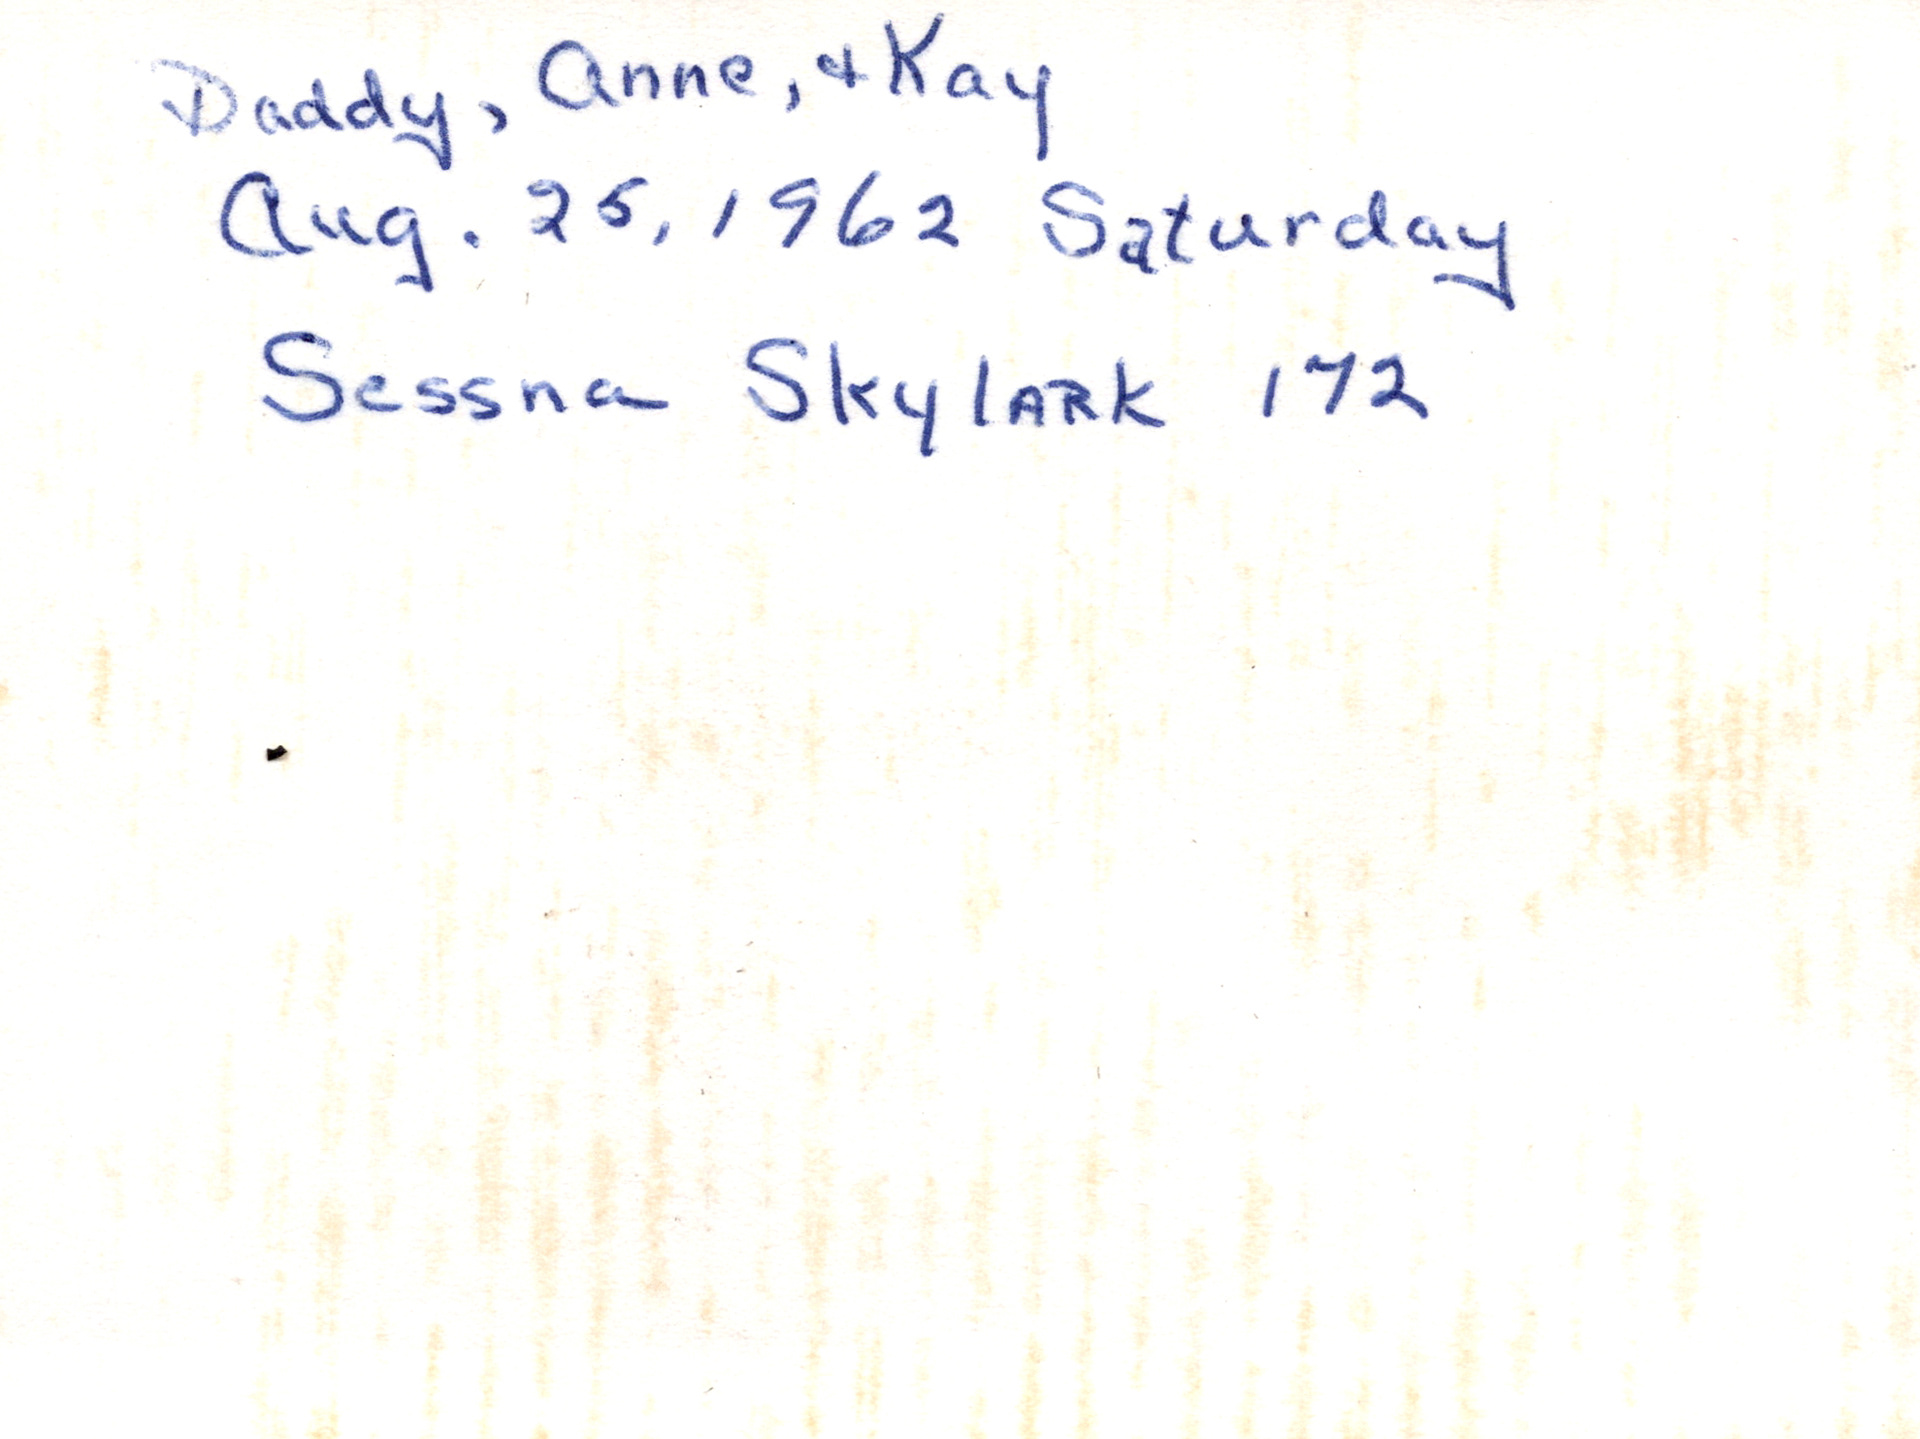 Daddy, Anne, & Kay
Aug. 25, 1962 Saturday
Sessna SkylARK 172